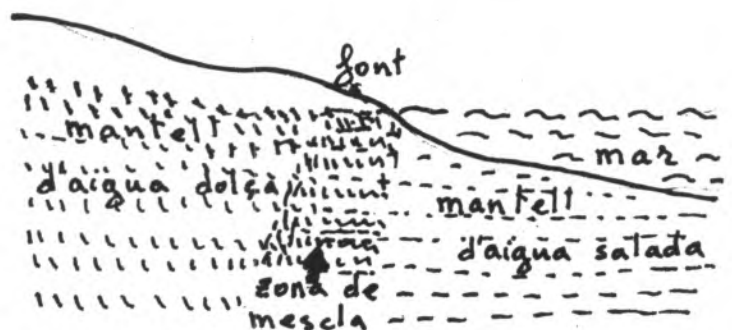 font
mantell
d'aigua dolça
mar
mantell
d'aigua salada
zona de
mescla